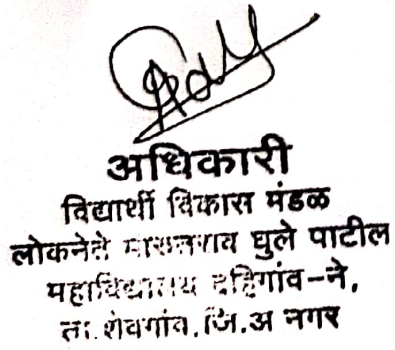 अधिकारी
विद्यार्थी विकास मंडळ
लोकनेते मारुतराव घुले पाटील
महाविद्यालय दहिगांव-ने,
ता. शेवगांव. जि.अ नगर